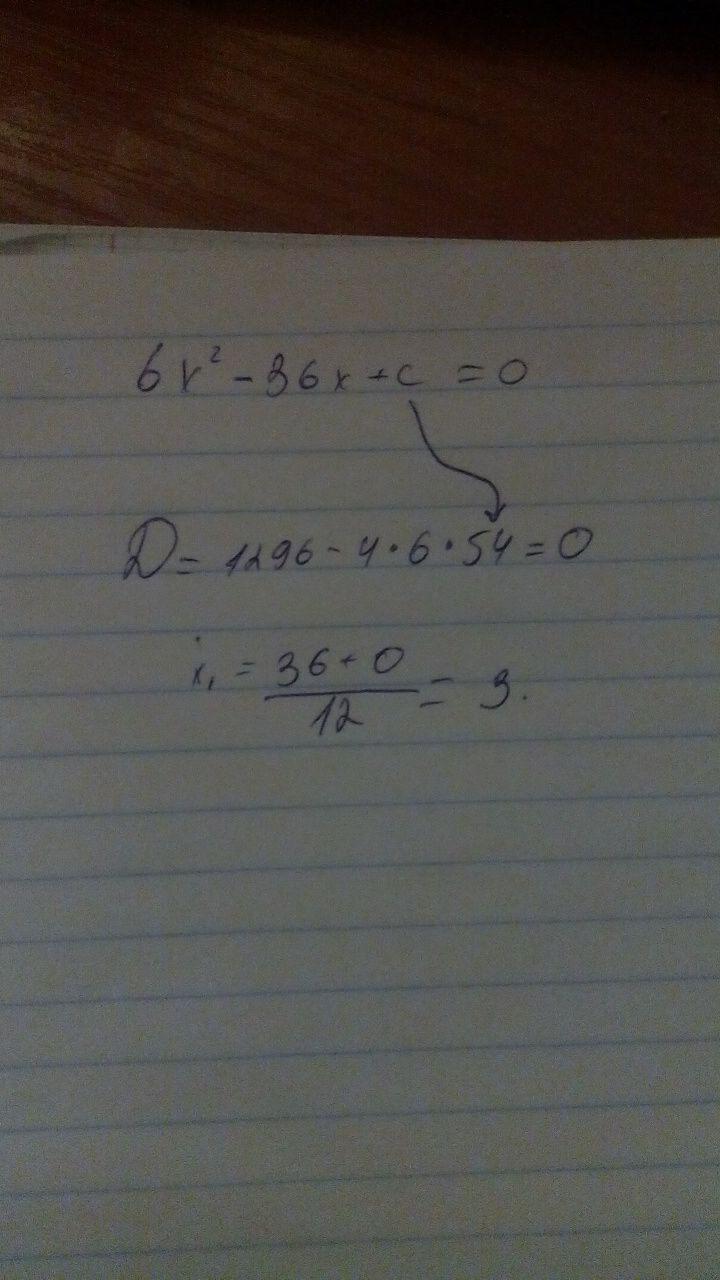 6x² - 36x + c = 0
D = 1296 - 4·6·54 = 0
x₁ = (36 + 0)/12 = 3.